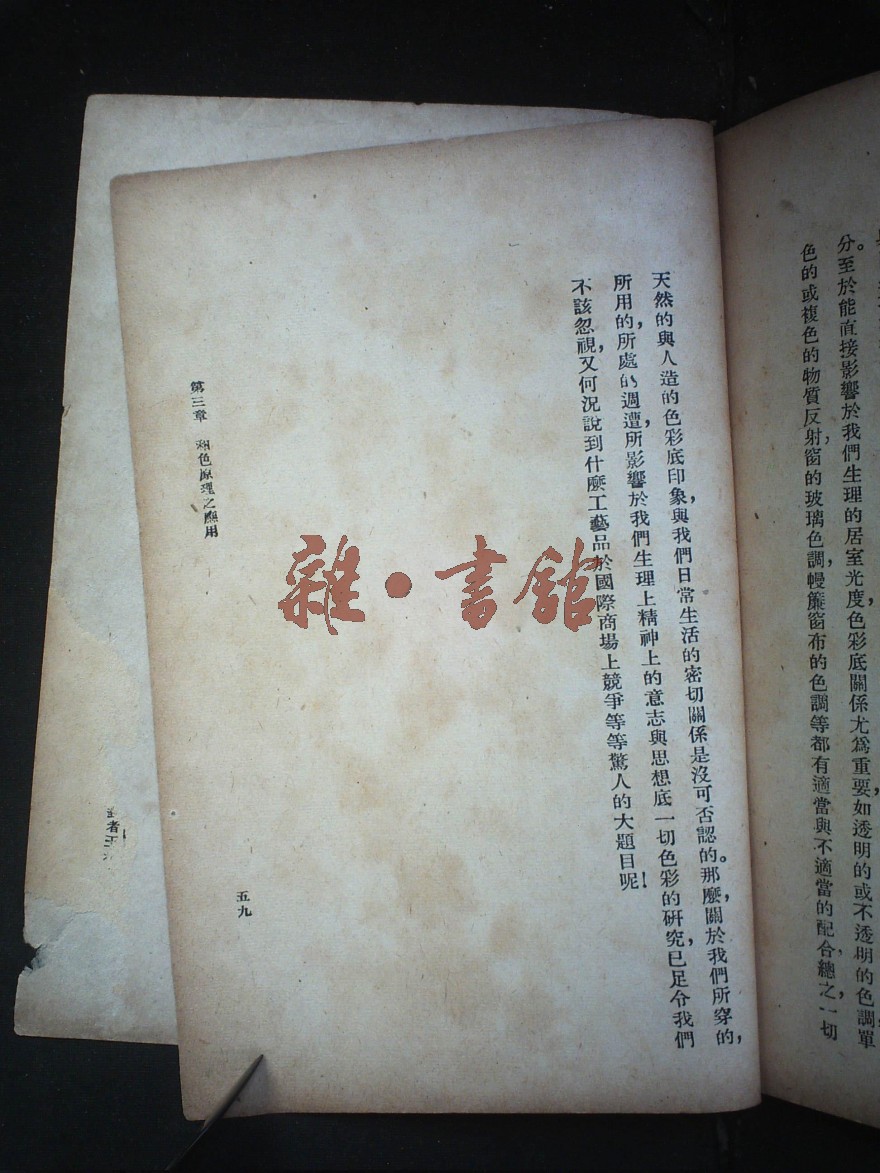 分。至於能直接影響於我們生理的居室光度,色彩底關係尤爲重要,如透明的或不透明的色調,單
色的或複色的物質反射,窗的玻璃色調,幔簾窗布的色調等都有適當與不適當的配合,總之,一切
天然的與人造的色彩底印象,與我們日常生活的密切關係是沒可否認的。那麼,關於我們所穿的,
所用的,所處的週遭,所影響於我們生理上精神上的意志與思想底一切色彩的研究,已足令我們
不該忽視,又何況說到什麼工藝品於國際商場上競爭等等驚人的大題目呢!
第三章 色原理之應用
五九
雜·書館
者王